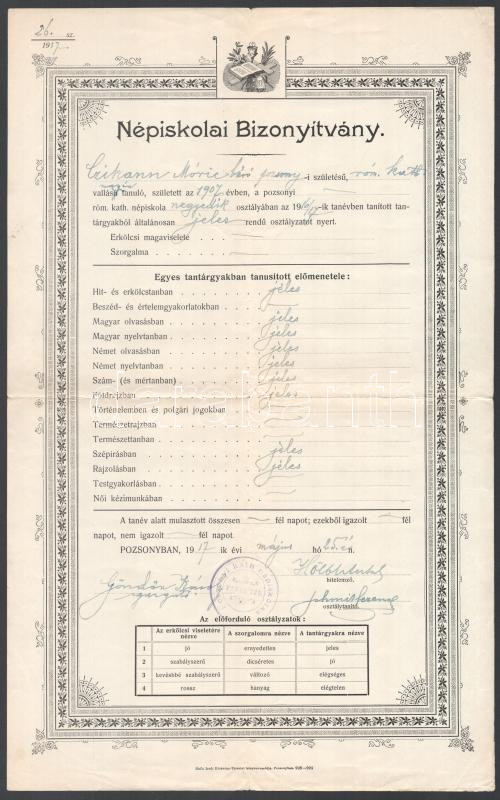 26. sz.
1917
Népiskolai Bizonyítvány.
Móric báró pozsony-i születésű, róm. kath.
vallású tanuló, született az 1907 évben, a pozsonyi
róm. kath. népiskola negyedik osztályában az 1916/17-ik tanévben tanított tan-
tárgyakból általánosan jeles rendű osztályzatot nyert.
Erkölcsi magaviselete
Szorgalma
Egyes tantárgyakban tanusított előmenetele:
Hit- és erkölcstanban jeles
Beszéd- és értelemgyakorlatokban
Magyar olvasásban jeles
Magyar nyelvtanban jeles
Német olvasásban jeles
Német nyelvtanban jeles
Szám- (és mértanban) jeles
Földrajzban jeles
Történelemben és polgári jogokban
Természetrajzban
Természettanban
Szépírásban jeles
Rajzolásban jeles
Testgyakorlásban
Női kézimunkában
A tanév alatt mulasztott összesen fél napot; ezekből igazolt fél
napot, nem igazolt fél napot.
POZSONYBAN, 1917 ik évi május hó 25én.
hitelemző.
igazgató
osztálytanító.
Az előforduló osztályzatok:
Az erkölcsi viseletére nézve A szorgalomra nézve A tantárgyakra nézve
1 jó ernyedetlen jeles
2 szabályszerű dicséretes jó
3 kevésbbé szabályszerű változó elégséges
4 rossz hanyag elégtelen